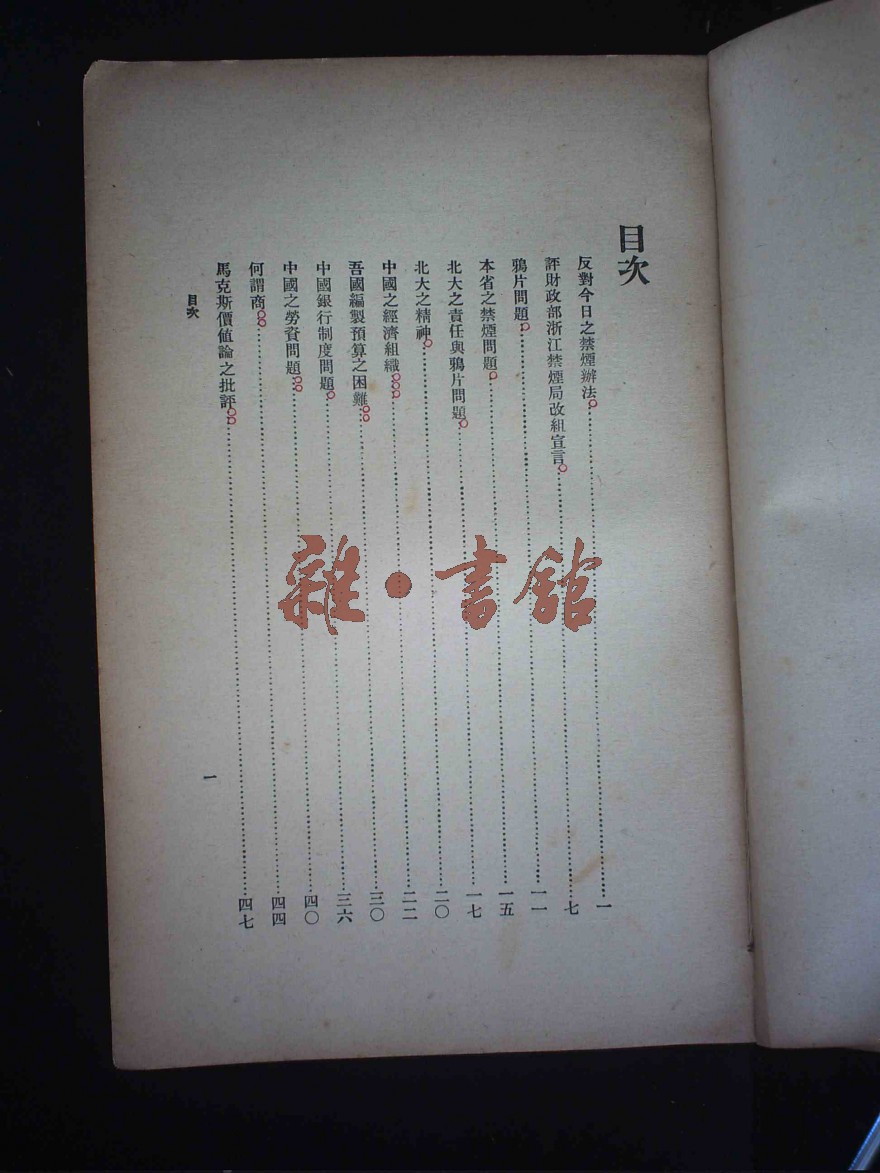 目次
反對今日之禁煙辦法……一
評財政部浙江禁煙局改組宣言……七
鴉片問題……一一
本省之禁煙問題……一五
北大之責任與鴉片問題……一七
北大之精神……二〇
中國之經濟組織……二二
吾國編製預算之困難……三〇
中國銀行制度問題……三六
中國之勞資問題……四〇
何謂商……四四
馬克斯價値論之批評……四七
目次
一
雜·書館